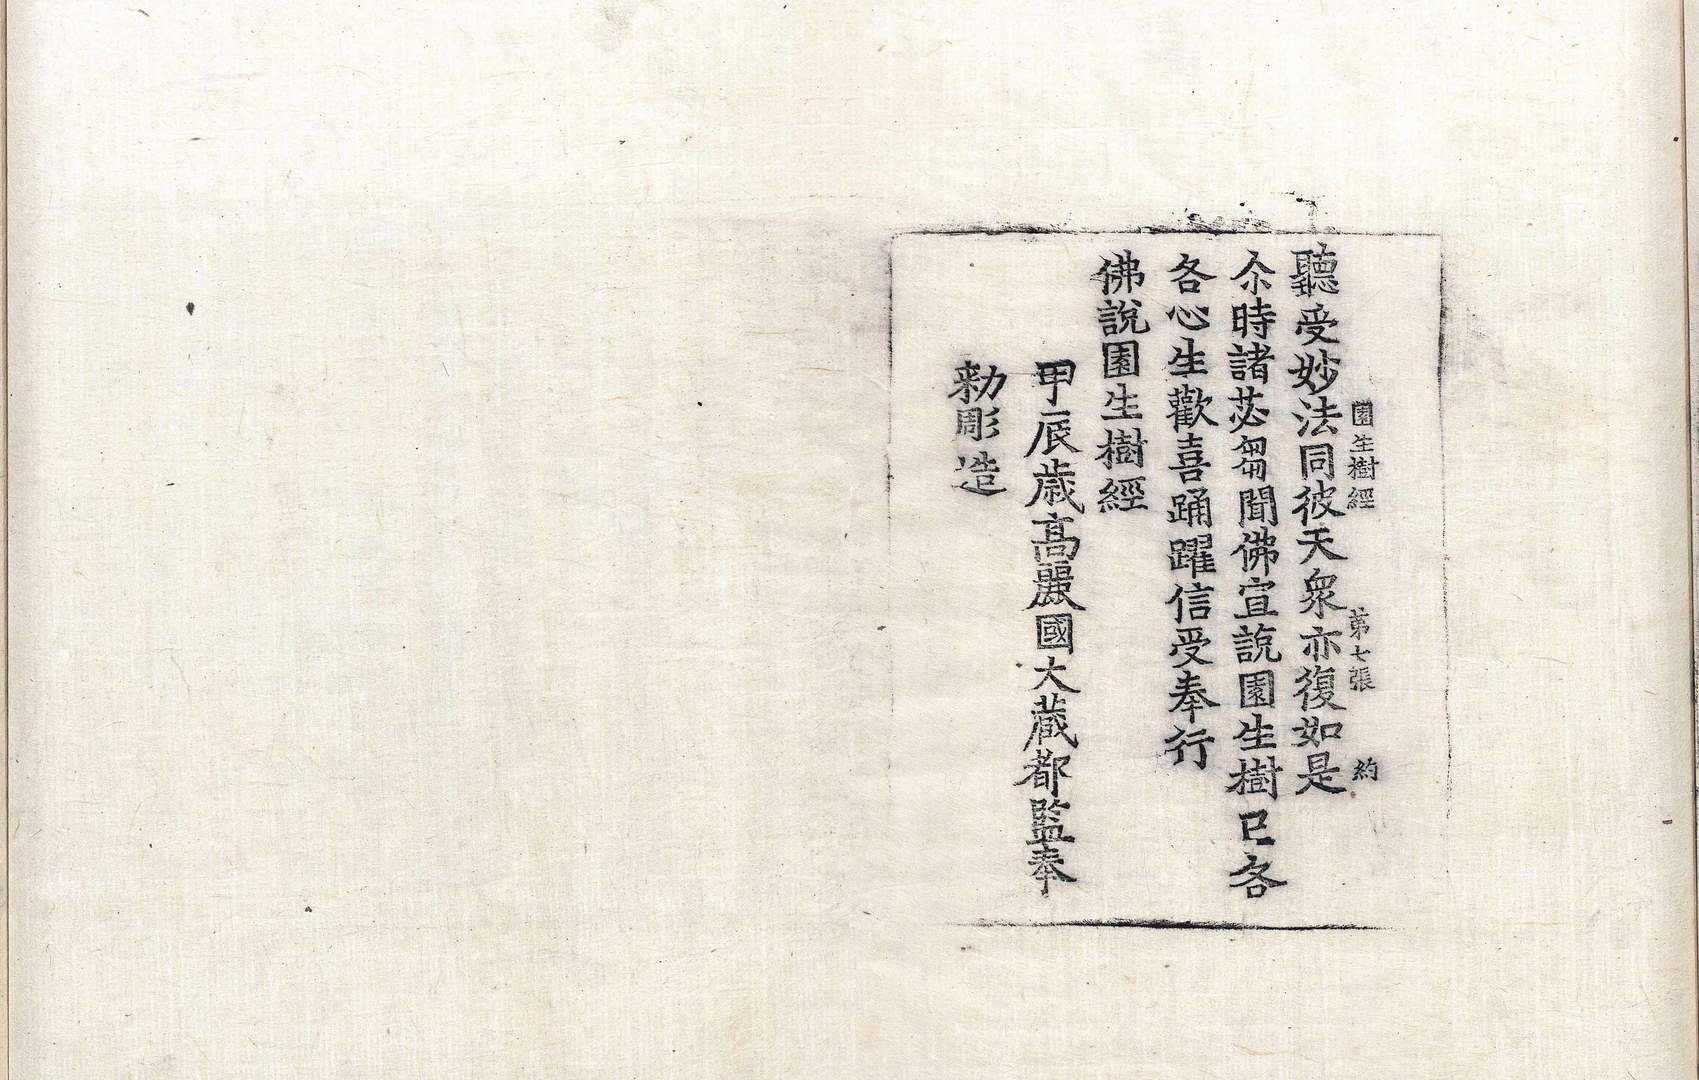 園生樹經 第七張 約
聽受妙法同彼天衆亦復如是
尒時諸苾芻聞佛宣說園生樹已各
各心生歡喜踊躍信受奉行
佛說園生樹經
甲辰歲高麗國大藏都監奉
勅彫造